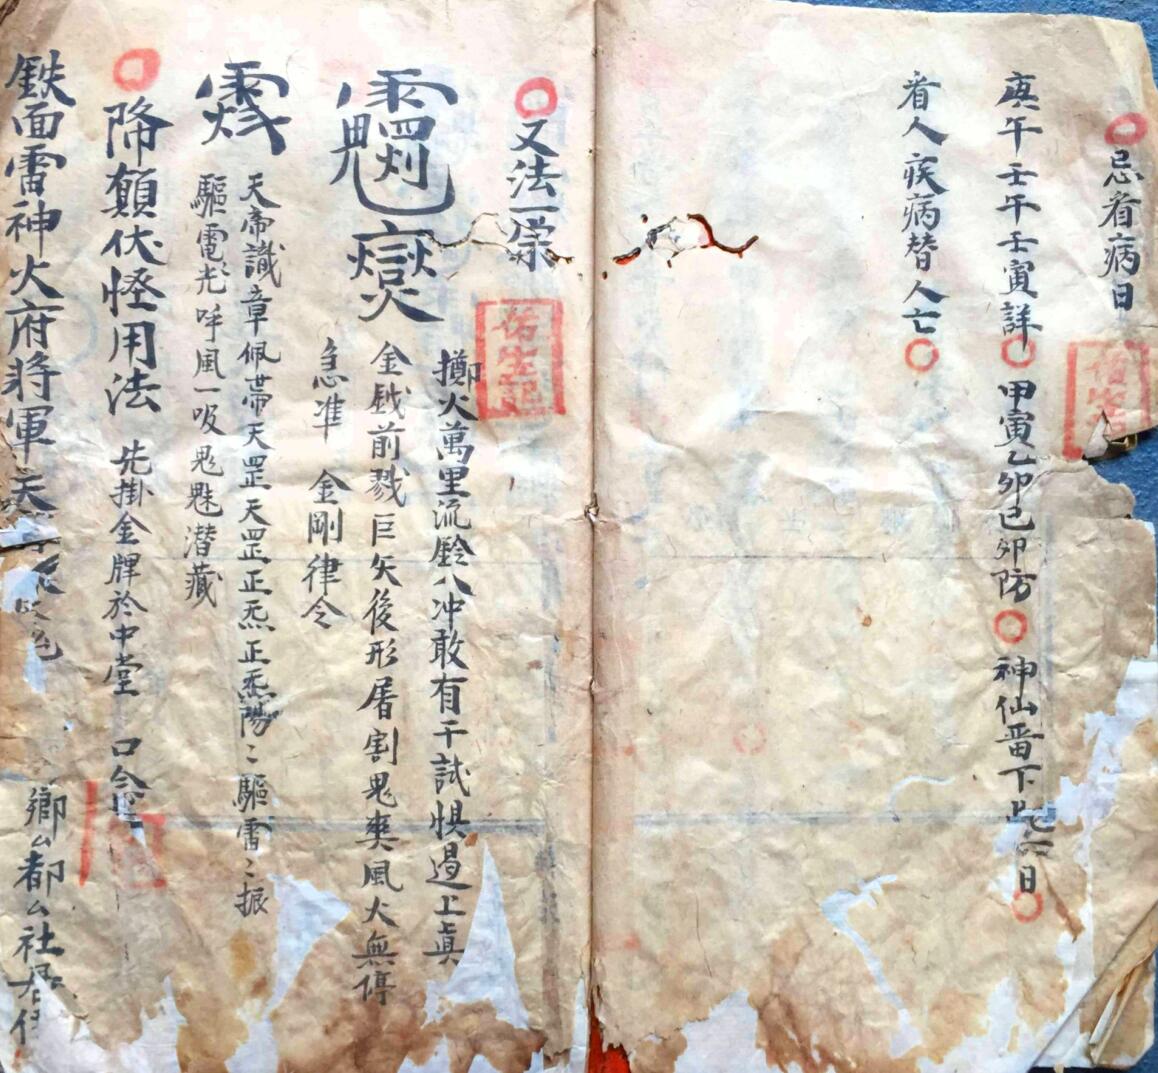 忌看病日
庚午壬午壬寅詳 甲寅乙卯己卯防 神仙留下此 日
看人疾病替人亡
又法一宗
擲火萬里流鈴八冲敢有干試惧遏上真
金鉞前戮巨矢後形屠割鬼爽風火無停
急准 金剛律令
天帝識章佩带天罡天罡正炁正炁陽〻驅雷〻振
驅電光呼風一吸鬼魅潜藏
降顛伏怪用法 先掛金牌於中堂 口念
鉄面雷神火府將軍天
鄉么都么社居